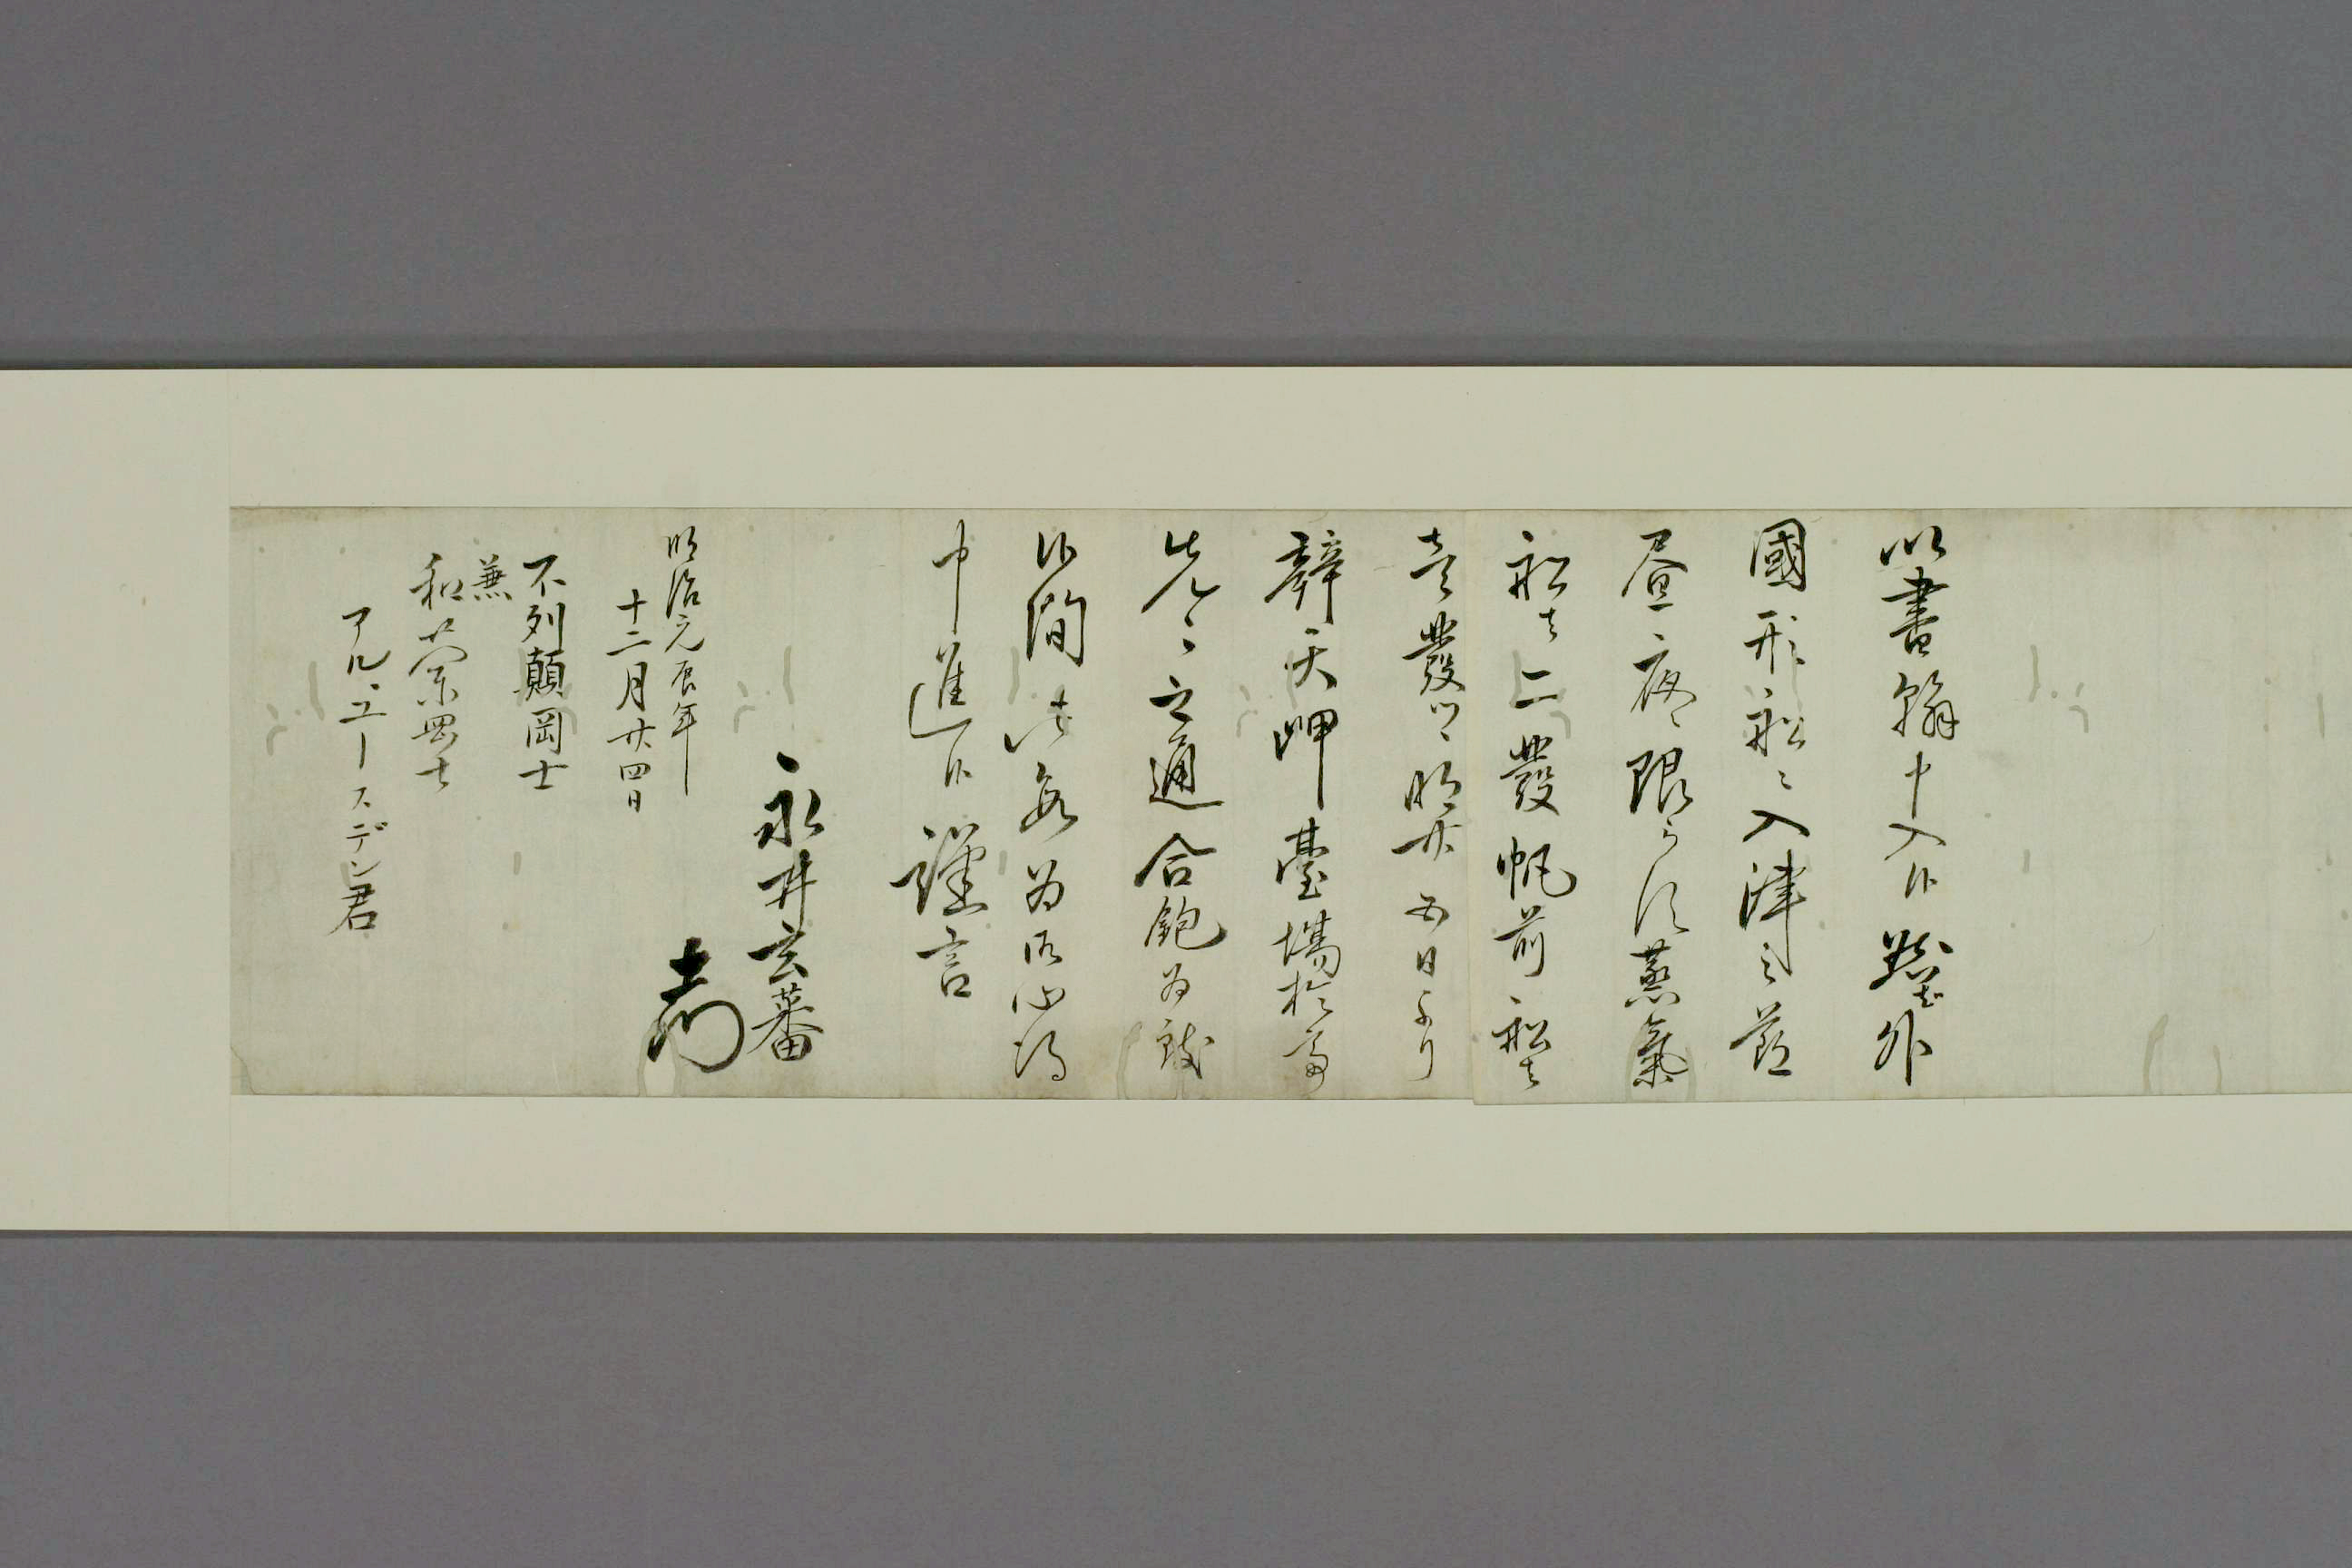 以書翰申入候然者外
國形船之入津之節
昼夜ニ不限蒸氣
船者二發帆前船者
壱發ツヽ明廿五日より
辨天岬臺場於而
先々之通合砲為致
候間此段為御心得
申進候謹言
永井玄蕃
明治元辰年
十二月廿四日
不列顛岡士
兼
和蘭岡士
アル、ユースデン君